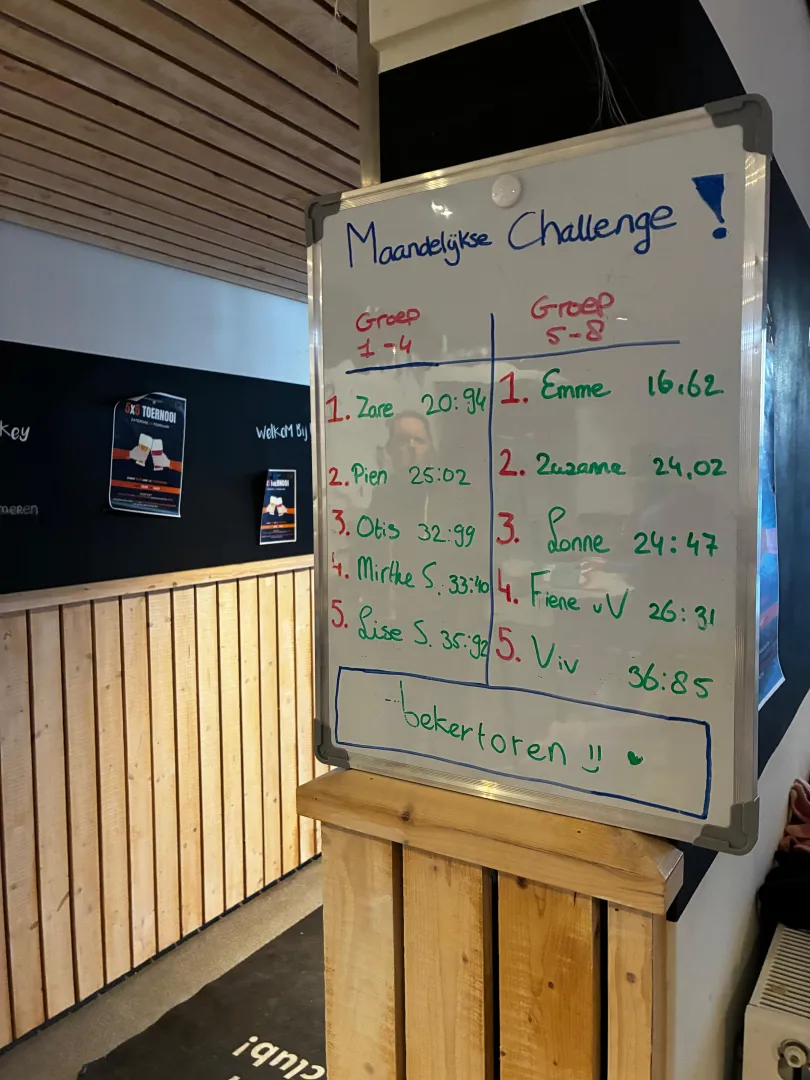 Maandelijkse Challenge!
Groep
1-4
1. Zare 20:94
2. Pien 25:02
3. Otis 32:99
4. Mirthe S. 33:40
5. Lise S. 35:92
Groep
5-8
1. Emme 16,62
2. Zuzanne 24,02
3. Lonne 24:47
4. Fiene vV 26:31
5. Viv 36:85
bekertoren !!
key
WELKOM Bij
5X5 TOERNOOI
TOERNOOI
club!